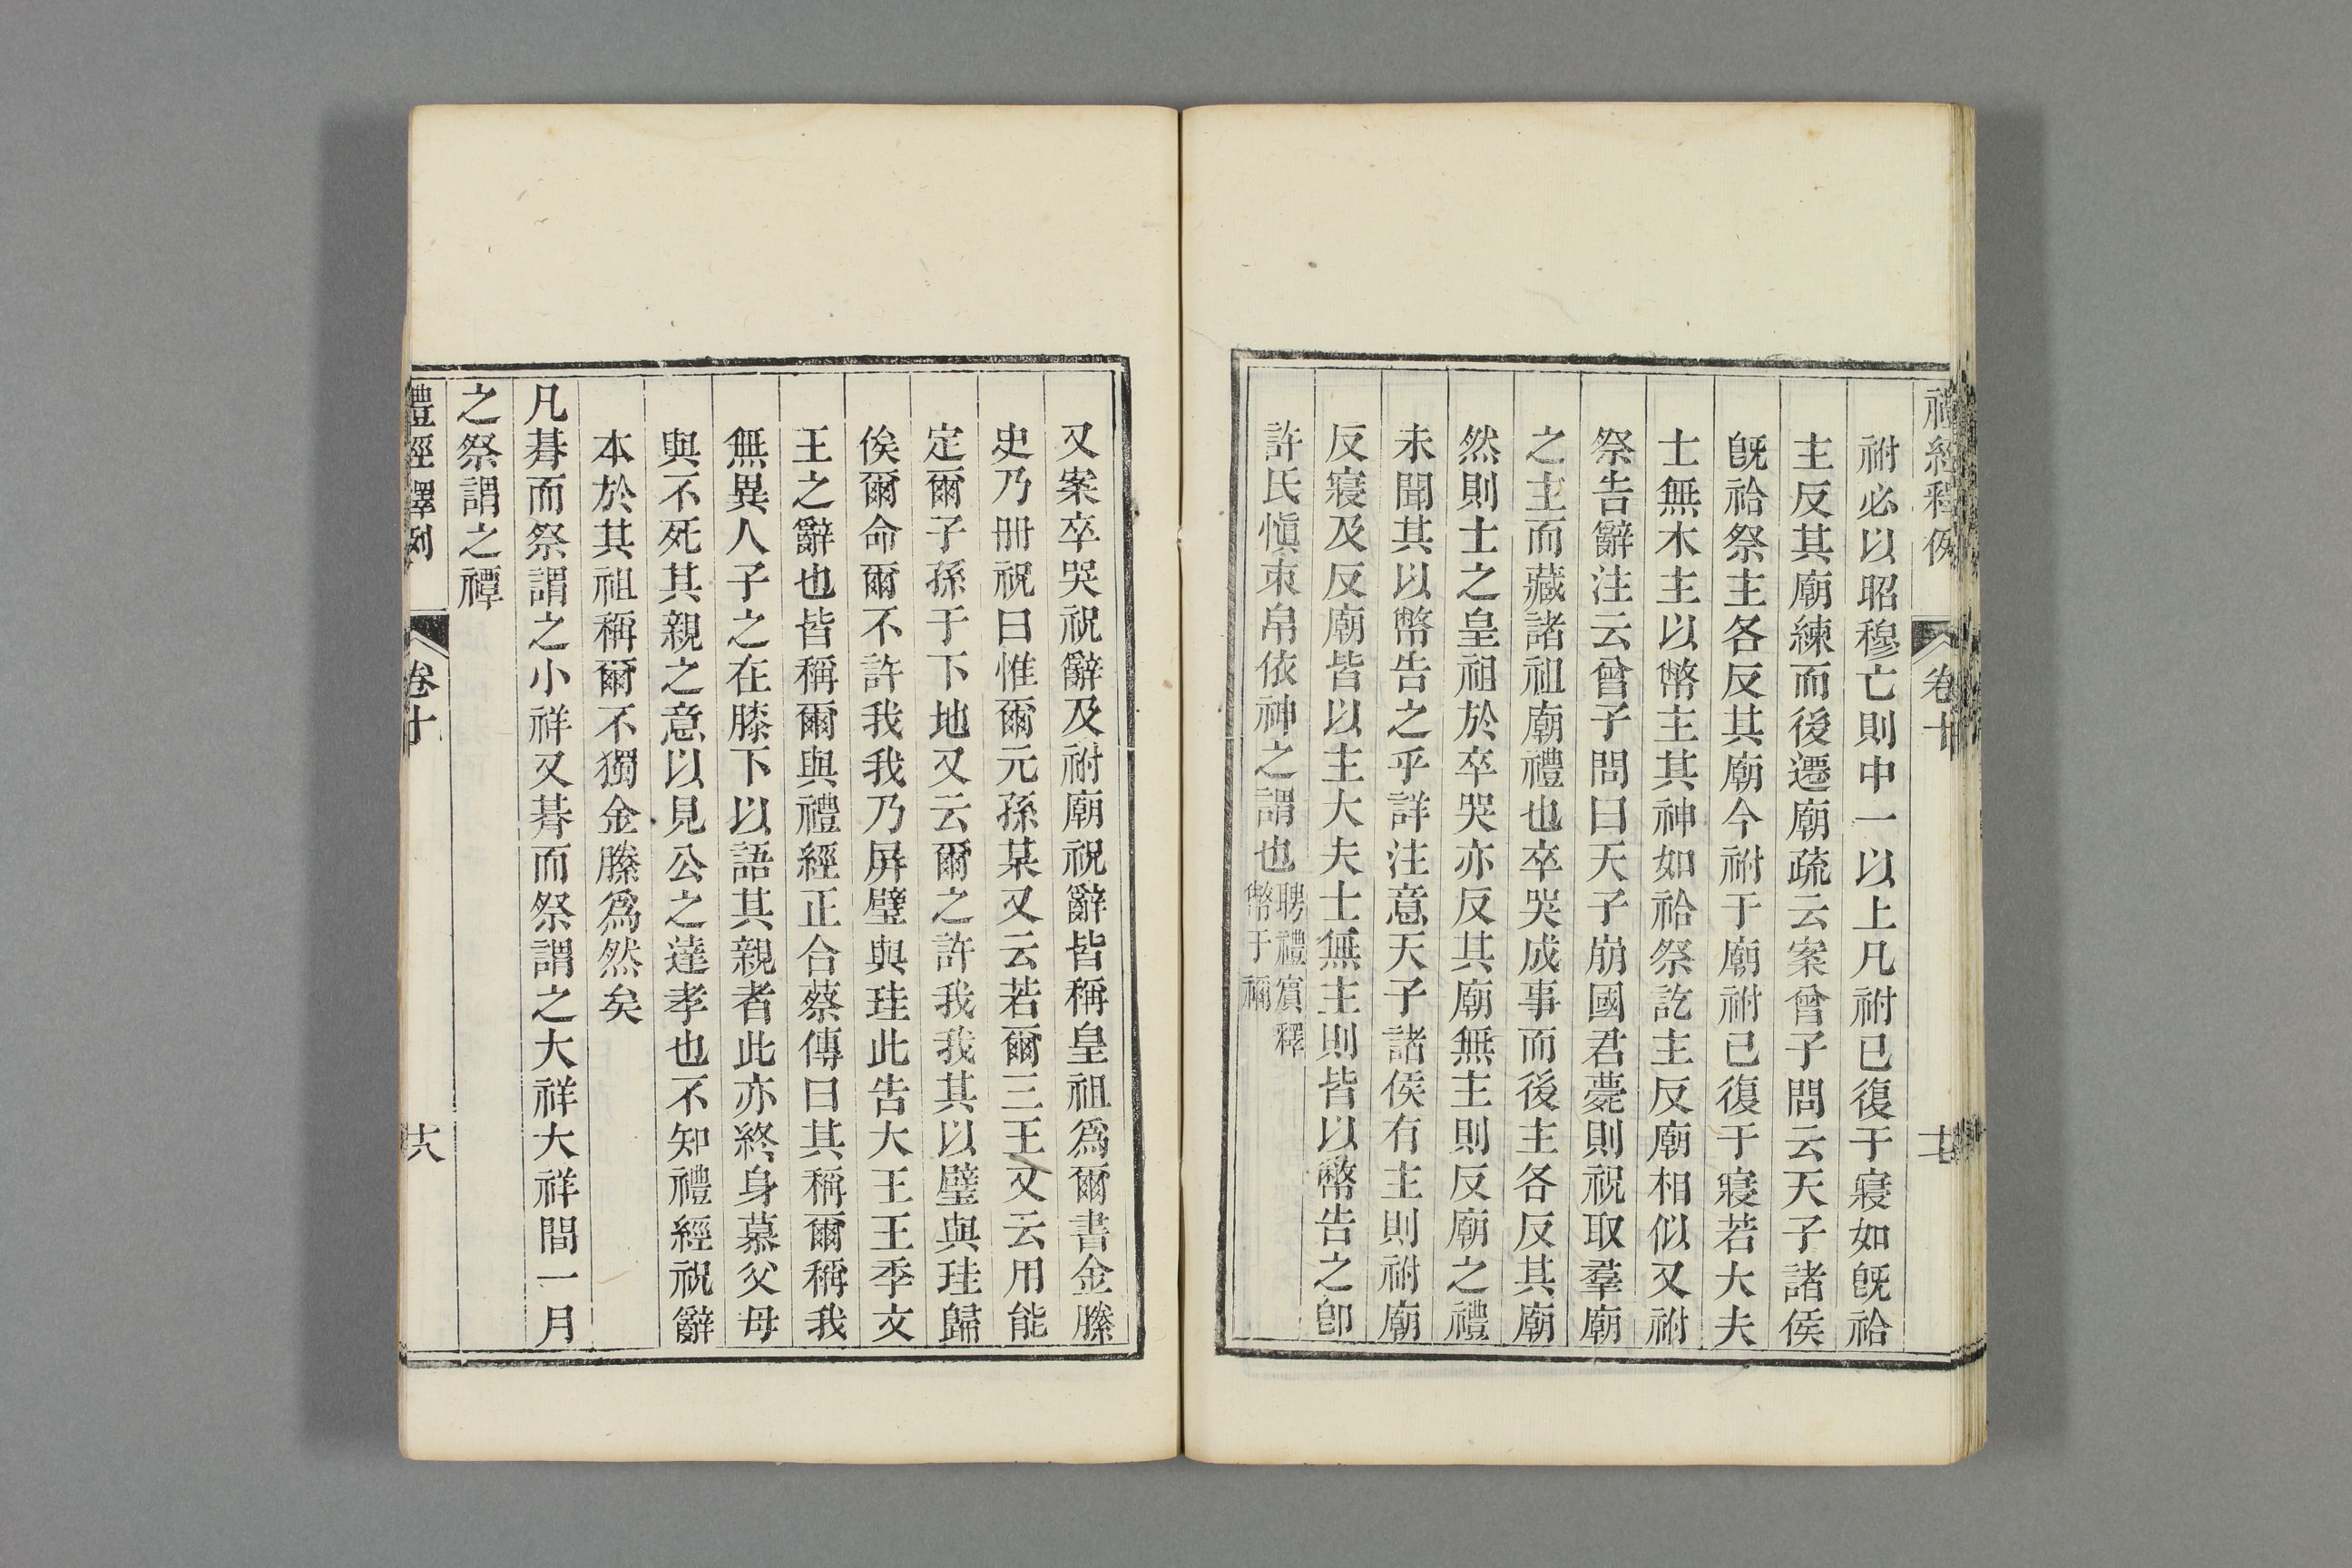 禮經釋例 卷十 十七
祔必以昭穆亡則中一以上凡祔已復于寢如旣祫
主反其廟練而後遷廟疏云案曾子問云天子諸侯
旣祫祭主各反其廟今祔于廟祔已復于寢若大夫
士無木主以幣主其神如祫祭訖主反廟相似又祔
祭告辭注云曾子問曰天子崩國君薨則祝取羣廟
之主而藏諸祖廟禮也卒哭成事而後主各反其廟
然則士之皇祖於卒哭亦反其廟無主則反廟之禮
未聞其以幣告之乎詳注意天子諸侯有主則祔廟
反寢及反廟皆以主大夫士無主則皆以幣告之卽
許氏愼朿帛依神之謂也聘禮賓釋
幣于禰
又案卒哭祝辭及祔廟祝辭皆稱皇祖爲爾書金縢
史乃冊祝曰惟爾元孫某又云若爾三王又云用能
定爾子孫于下地又云爾之許我我其以璧與珪歸
俟爾命爾不許我我乃屏璧與珪此告大王王季文
王之辭也皆稱爾與禮經正合蔡傳曰其稱爾稱我
無異人子之在膝下以語其親者此亦終身慕父母
與不死其親之意以見公之達孝也不知禮經祝辭
本於其祖稱爾不獨金縢爲然矣
凡朞而祭謂之小祥又朞而祭謂之大祥大祥間一月
之祭謂之禫
禮經釋例 卷十 十八